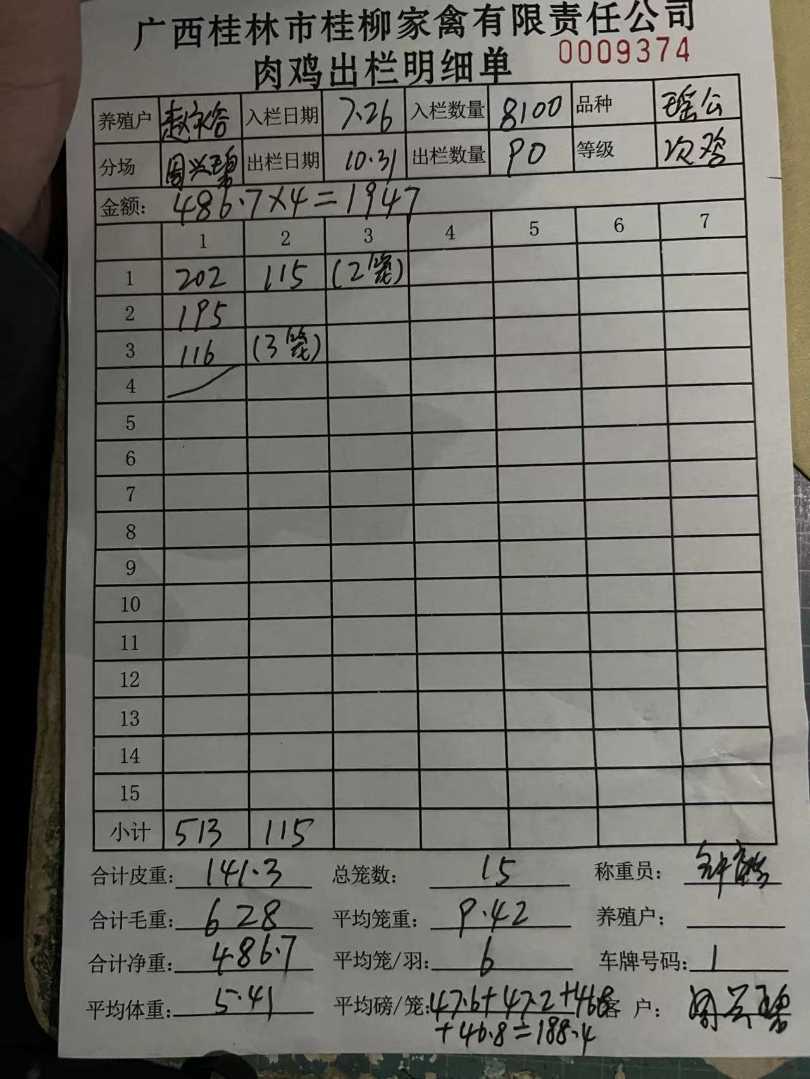 广西桂林市桂柳家禽有限责任公司
肉鸡出栏明细单 0009374
养殖户 入栏日期 7.26 入栏数量 8100 品种 瑶公
分场 周兴碧 出栏日期 10.31 出栏数量 90 等级 次鸡
金额: 486.7×4=1947
1 2 3 4 5 6 7
1 202 115 (2笼)
2 195
3 116 (3笼)
4
5
6
7
8
9
10
11
12
13
14
15
小计 513 115
合计皮重: 141.3 总笼数: 15 称重员:
合计毛重: 628 平均笼重: 9.42 养殖户:
合计净重: 486.7 平均笼/羽: 6 车牌号码: 1
平均体重: 5.41 平均磅/笼: 47.6+47.2+46.8 客户: 周兴碧
+46.8=188.4